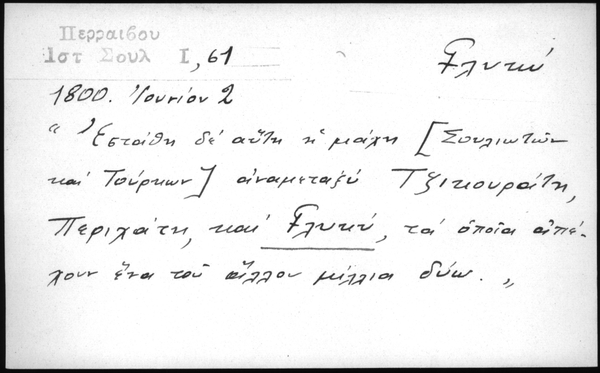 Περραιβου
1στ Σουλ Ι, 61
Γλυκύ
1800. Ἰουνίου 2
"Ἐστάθη δέ αὕτη ἡ μάχη [Σουλιωτῶν
καί Τούρκων] ἀναμεταξύ Τζικουράτη,
Περιχάτη, καί Γλυκύ, τά ὁποῖα ἀπέ-
χουν ἕνα τοῦ ἄλλου μίλλια δύω."